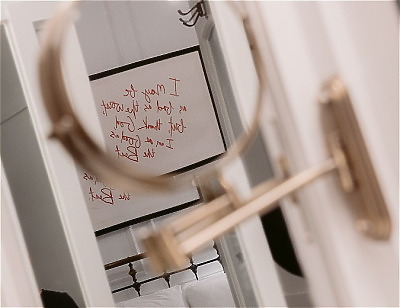 I May be
as bad as the worst,
but thank God
I'm as good as
the Best
as
the Best